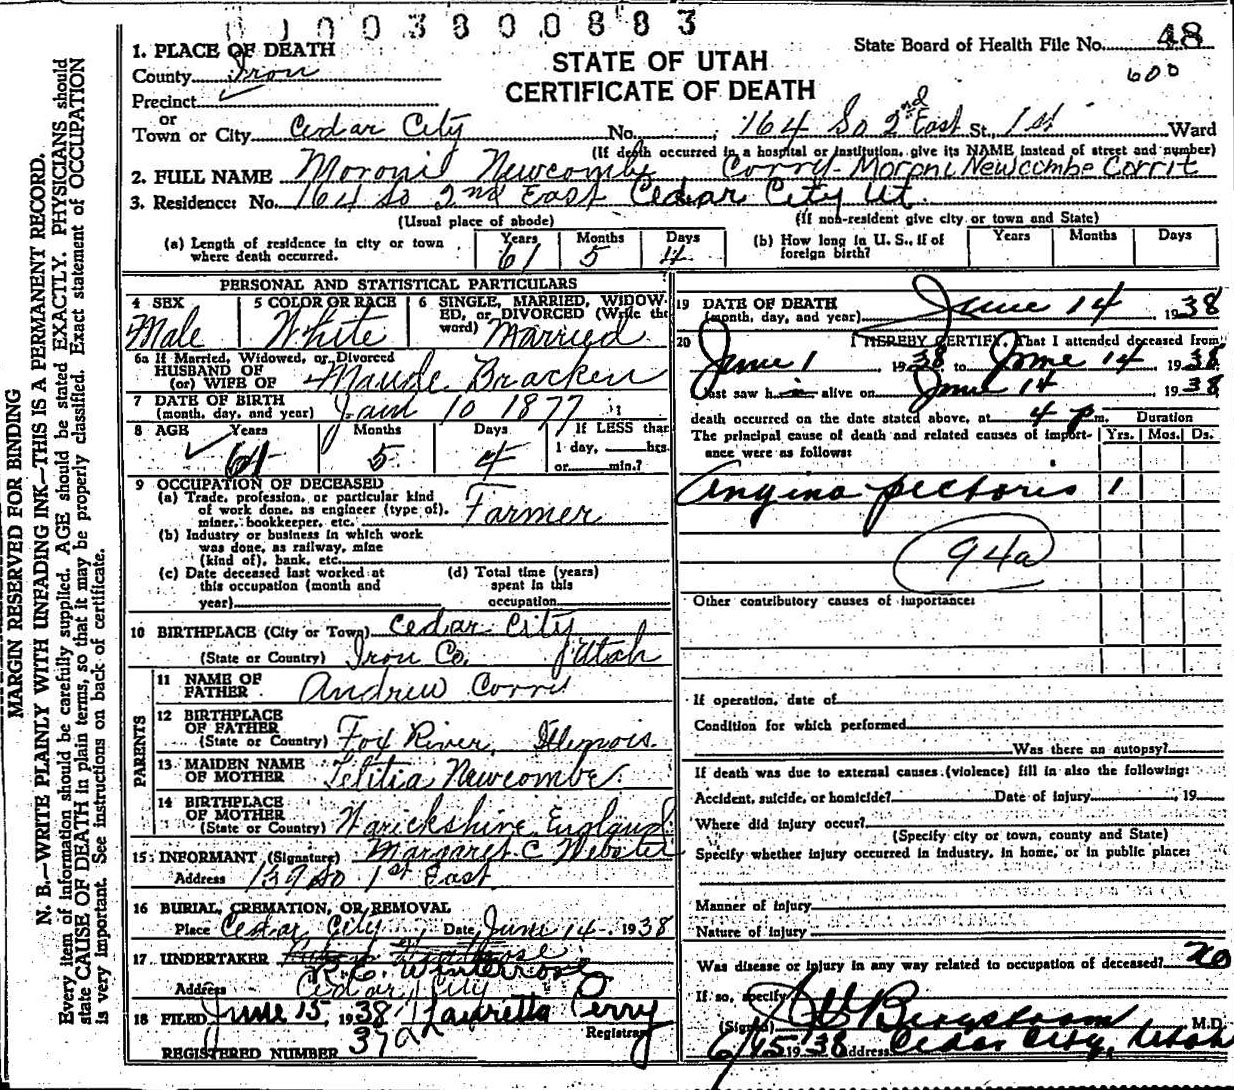 01003800883
1. PLACE OF DEATH
STATE OF UTAH
CERTIFICATE OF DEATH
State Board of Health File No. 48
600
County Iron
Precinct
or
Town or City Cedar City No. 164 So 2nd East St. 1st Ward
(If death occurred in a hospital or institution, give its NAME instead of street and number)
2. FULL NAME Moroni Newcombe Corry - Moroni Newcombe Corrit
3. Residence: No. 164 So 2nd East Cedar City Ut.
(Usual place of abode) (If non-resident give city or town and State)
(a) Length of residence in city or town where death occurred. Years 61 Months 5 Days 4
(b) How long in U. S., if of foreign birth? Years Months Days
PERSONAL AND STATISTICAL PARTICULARS
4 SEX Male
5 COLOR OR RACE White
6 SINGLE, MARRIED, WIDOWED, or DIVORCED (Write the word) Married
6a If Married, Widowed, or Divorced
HUSBAND OF
(or) WIFE OF Maude Bracken
7 DATE OF BIRTH
(month, day, and year) Jan 10 1877
8 AGE Years 61 Months 5 Days 4 If LESS than
1 day, hrs.
or min.?
9 OCCUPATION OF DECEASED
(a) Trade, profession, or particular kind
of work done, as engineer (type of),
miner, bookkeeper, etc. Farmer
(b) Industry or business in which work
was done, as railway, mine
(kind of), bank, etc.
(c) Date deceased last worked at
this occupation (month and
year)
(d) Total time (years)
spent in this
occupation
10 BIRTHPLACE (City or Town) Cedar City
(State or Country) Iron Co. Utah
PARENTS
11 NAME OF
FATHER Andrew Corry
12 BIRTHPLACE
OF FATHER
(State or Country) Fox River, Illinois.
13 MAIDEN NAME
OF MOTHER Telitia Newcombe
14 BIRTHPLACE
OF MOTHER
(State or Country) Warickshire England
15 INFORMANT (Signature) Margaret C Webster
Address 139 So 1st East
16 BURIAL, CREMATION, OR REMOVAL
Place Cedar City Date June 14 1938
17 UNDERTAKER
Winterrose
Address Cedar City
18 FILED June 15, 1938 Lauretta Perry
Registrar
REGISTERED NUMBER 37
19 DATE OF DEATH
(month, day, and year) June 14 1938
20 I HEREBY CERTIFY, That I attended deceased from
June 1 1938 to June 14 1938
last saw him alive on June 14 1938
death occurred on the date stated above, at 4 p.m. Duration
The principal cause of death and related causes of importance were as follows: Yrs. Mos. Ds.
Angina pectoris 1
94a
Other contributory causes of importance:
If operation, date of
Condition for which performed
Was there an autopsy?
If death was due to external causes (violence) fill in also the following:
Accident, suicide, or homicide? Date of injury , 19
Where did injury occur?
(Specify city or town, county and State)
Specify whether injury occurred in industry, in home, or in public place:
Manner of injury
Nature of injury
Was disease or injury in any way related to occupation of deceased? no
If so, specify
(Signed) Bergstrom M.D.
6/15 1938 Address Cedar City, Utah
MARGIN RESERVED FOR BINDING
N. B.—WRITE PLAINLY WITH UNFADING INK—THIS IS A PERMANENT RECORD.
Every item of information should be carefully supplied. AGE should be stated EXACTLY. PHYSICIANS should
state CAUSE OF DEATH in plain terms, so that it may be properly classified. Exact statement of OCCUPATION
is very important. See instructions on back of certificate.